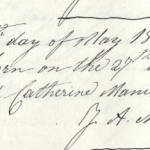 day of May 18
born on the 27th
Catherine
J. A.